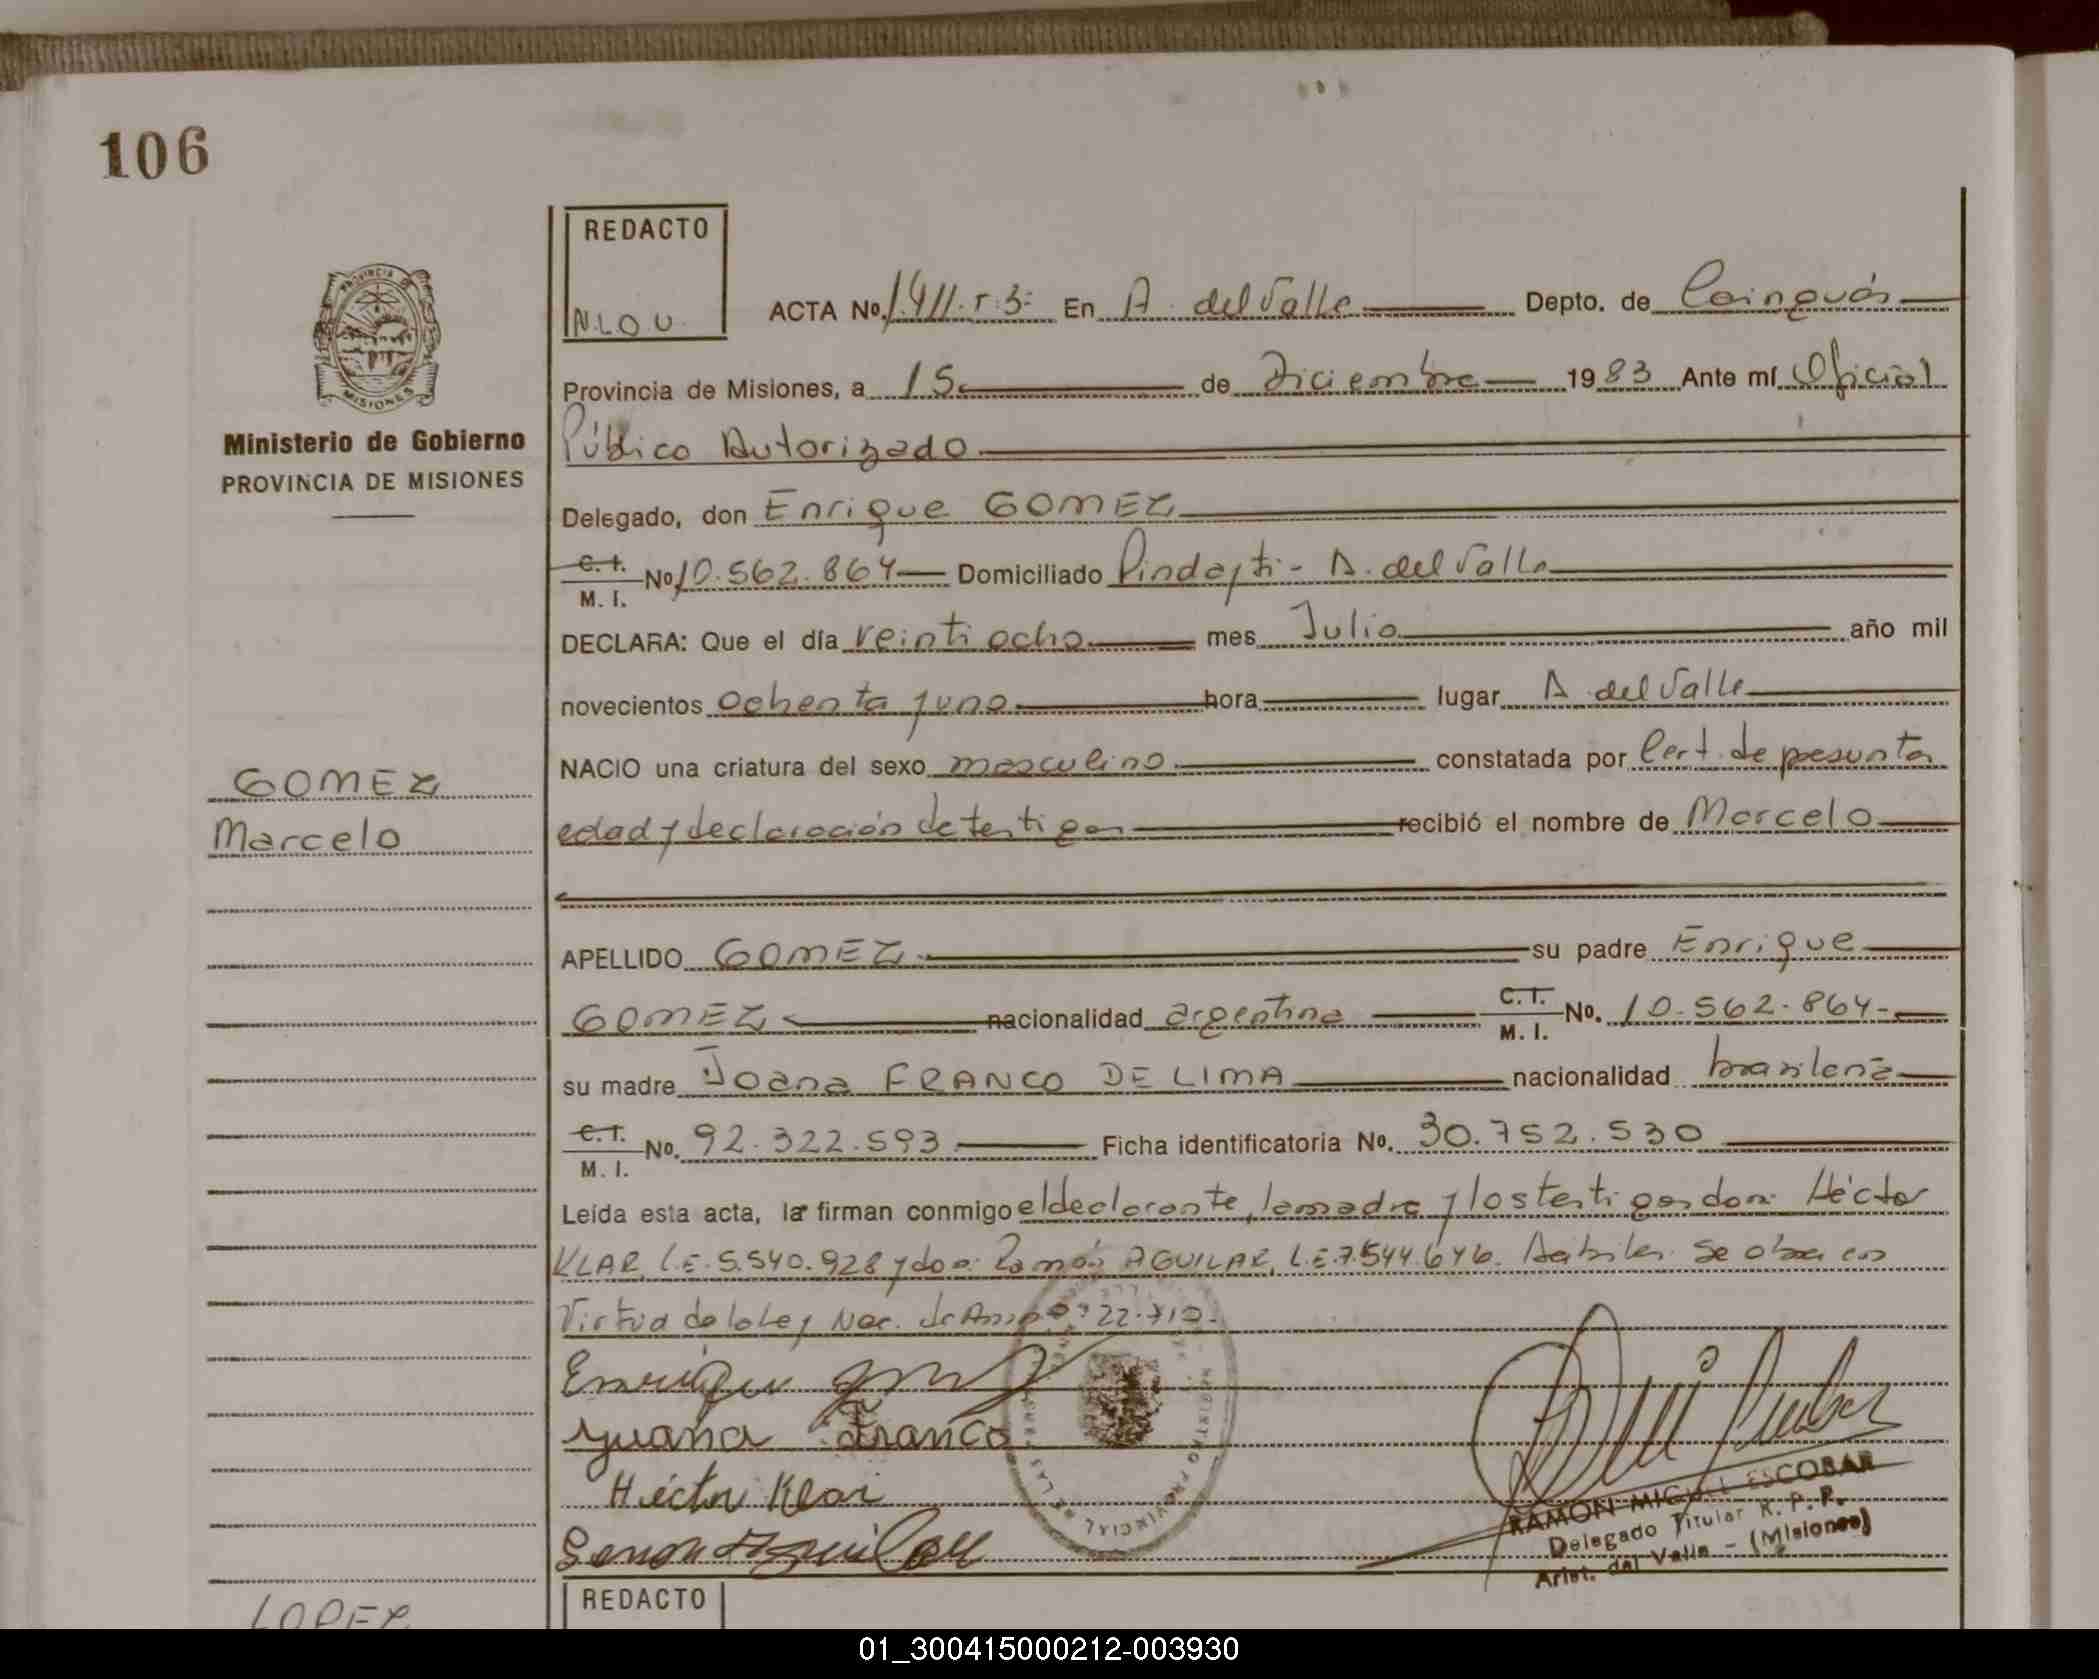 106
REDACTO
N.L.O.U.
PROVINCIA DE
MISIONES
Ministerio de Gobierno
PROVINCIA DE MISIONES
ACTA No. 1.411.T.3- En A. del Valle Depto. de Cainguás
Provincia de Misiones, a 15 de Diciembre 1983 Ante mí Oficial
Público Autorizado
Delegado, don Enrique GOMEZ
C. I.
M. I. No 10.562.864 Domiciliado Pindayti - A. del Valle
DECLARA: Que el día veintiocho mes Julio año mil
novecientos ochenta y uno hora lugar A. del Valle
NACIO una criatura del sexo masculino constatada por Cert. de presunta
edad y declaración de testigos recibió el nombre de Marcelo
GOMEZ
Marcelo
APELLIDO GOMEZ su padre Enrique
GOMEZ nacionalidad argentina C.I. M. I. No. 10.562.864-
su madre Joana FRANCO DE LIMA nacionalidad brasileña
C.I.
M. I. No. 92.322.593 Ficha identificatoria No. 30.752.530
Leída esta acta, la firman conmigo el declarante, la madre y los testigos don: Héctor
KLAR, L.E. 5.540.928 y don: Ramón AGUILAR, L.E. 7.544.646. Hábiles. Se obra en
Virtud de la Ley Nac. de 22.710.
Enrique
Juana Franco
Héctor Klar
RAMON MIGUEL ESCOBAR
Delegado Titular R. P. P.
Arist. del Valle - (Misiones)
REGISTRO PROVINCIAL DE LAS
REDACTO
LOPEZ
01_300415000212-003930